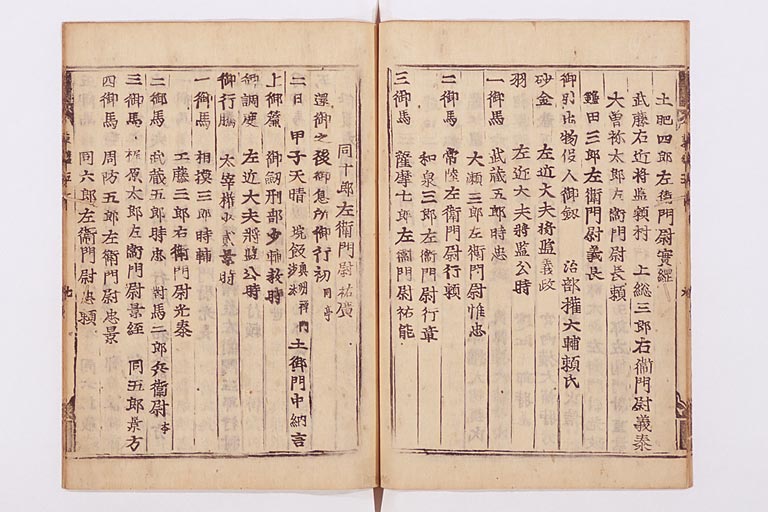 土肥四郎左衛門尉實經
武藤右近将監頼村 上総三郎右衛門尉義泰
大曽祢太郎左衛門尉長頼
鎌田三郎左衛門尉義長
御引出物役人御劔 治部權大輔頼氏
砂金 左近大夫将監義政
羽 左近大夫将監公時
一御馬 武蔵五郎時忠
大瀬三郎左衛門尉惟忠
二御馬 常陸左衛門尉行頼
和泉三郎左衛門尉行章
三御馬 薩摩七郎左衛門尉祐能
同十郎左衛門尉祐廣
還御之後御息所御行初 同亭
二日 甲子天晴 垸飯 奥州禅門沙汰 土御門中納言
上御簾 御劔刑部少輔教時
御調度 左近大夫将監公時
御行騰 太宰權少貳景時
一御馬 相摸三郎時輔
工藤三郎右衛門尉光泰
二御馬 武蔵五郎時忠 對馬二郎兵衛尉
三御馬 梶原太郎左衛門尉景綱 同五郎景方
四御馬 周防五郎左衛門尉忠景
同六郎左衛門尉忠頼